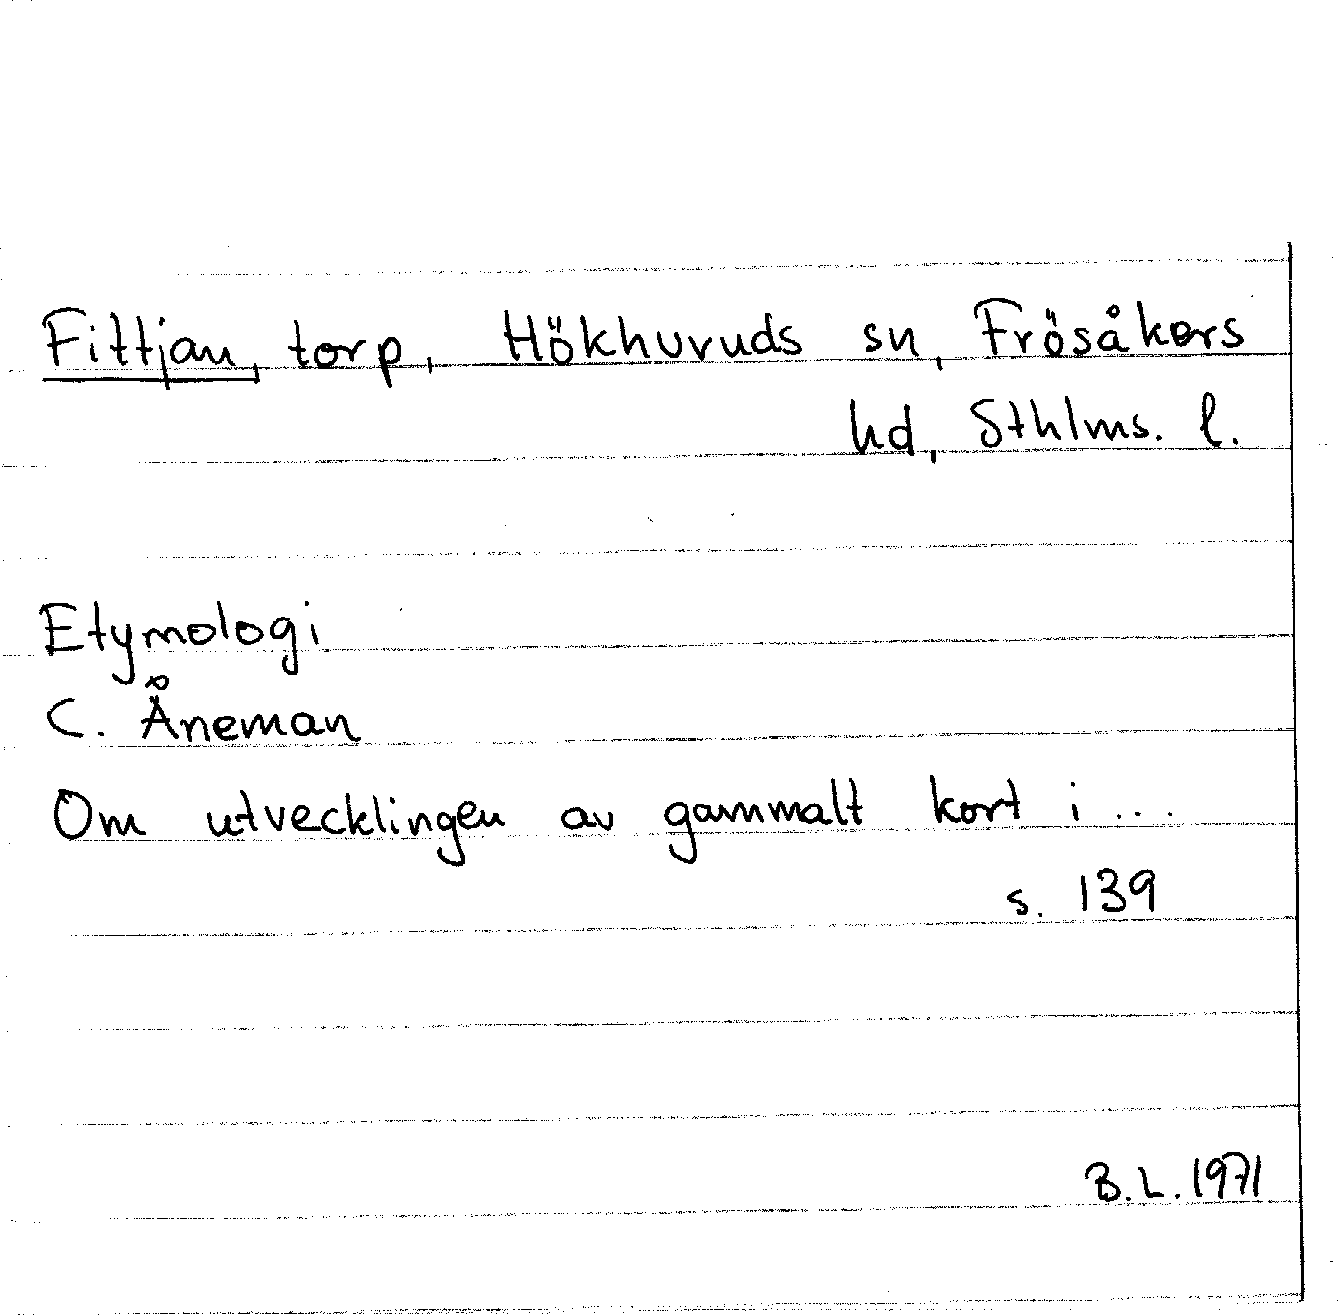 Fittjan, torp, Hökhuvuds sn, Frösåkers
hd, Sthlms. l.
Etymologi
C. Åneman
Om utvecklingen av gammalt kort i ...
s. 139
B.L. 1971